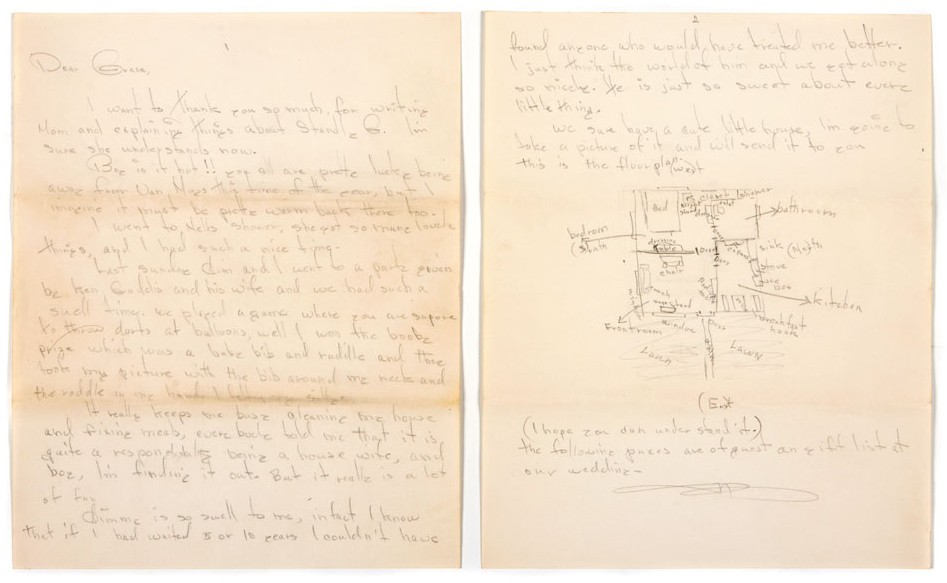 1
Dear Grace,
I want to thank you so much, for writing
Mom and explaining things about Stanley G. I'm
sure she understands now.
Boy is it hot!! you all are prety lucky being
away from Van Nuys this time of the year, but I
imagine it must be prety warm back there too.
I went to Nells shower, she got so many lovely
things, and I had such a nice time.
Last sunday Jim and I went to a party given
by Ken and his wife and we had such a
swell time. we played a game where you are supose
to throw dorts at balloons, well I won the booby
prize which was a baby bib and raddle and they
took my picture with the bib around my neck and
the raddle in my hand. I silly.
It really keeps me busy cleaning my house
and fixing meals, every body told me that it is
quite a responsibility being a house wife, and
boy, I'm finding it out. But it really is a lot
of fun
Jimmie is so swell to me, infact I know
that if I had waited 5 or 10 years I couldn't have
2
found anyone who would have treated me better.
I just think the world of him and we get along
so nicely. He is just so sweet about every
little thing.
we sure have a cute little house, I'm going to
take a picture of it and will send it to you
this is the floorplan
west
closet
shower
Bed
toilet
bathroom
bedroom
(South
dressing
table
Door
chair
sink
(North
stove
ice
box
couch
kitchen
breakfast
nook
Frontroom
window
Door
Lawn
Lawn
(East
(I hope you can understand it.)
the following pages are of guest an gift list at
our wedding-